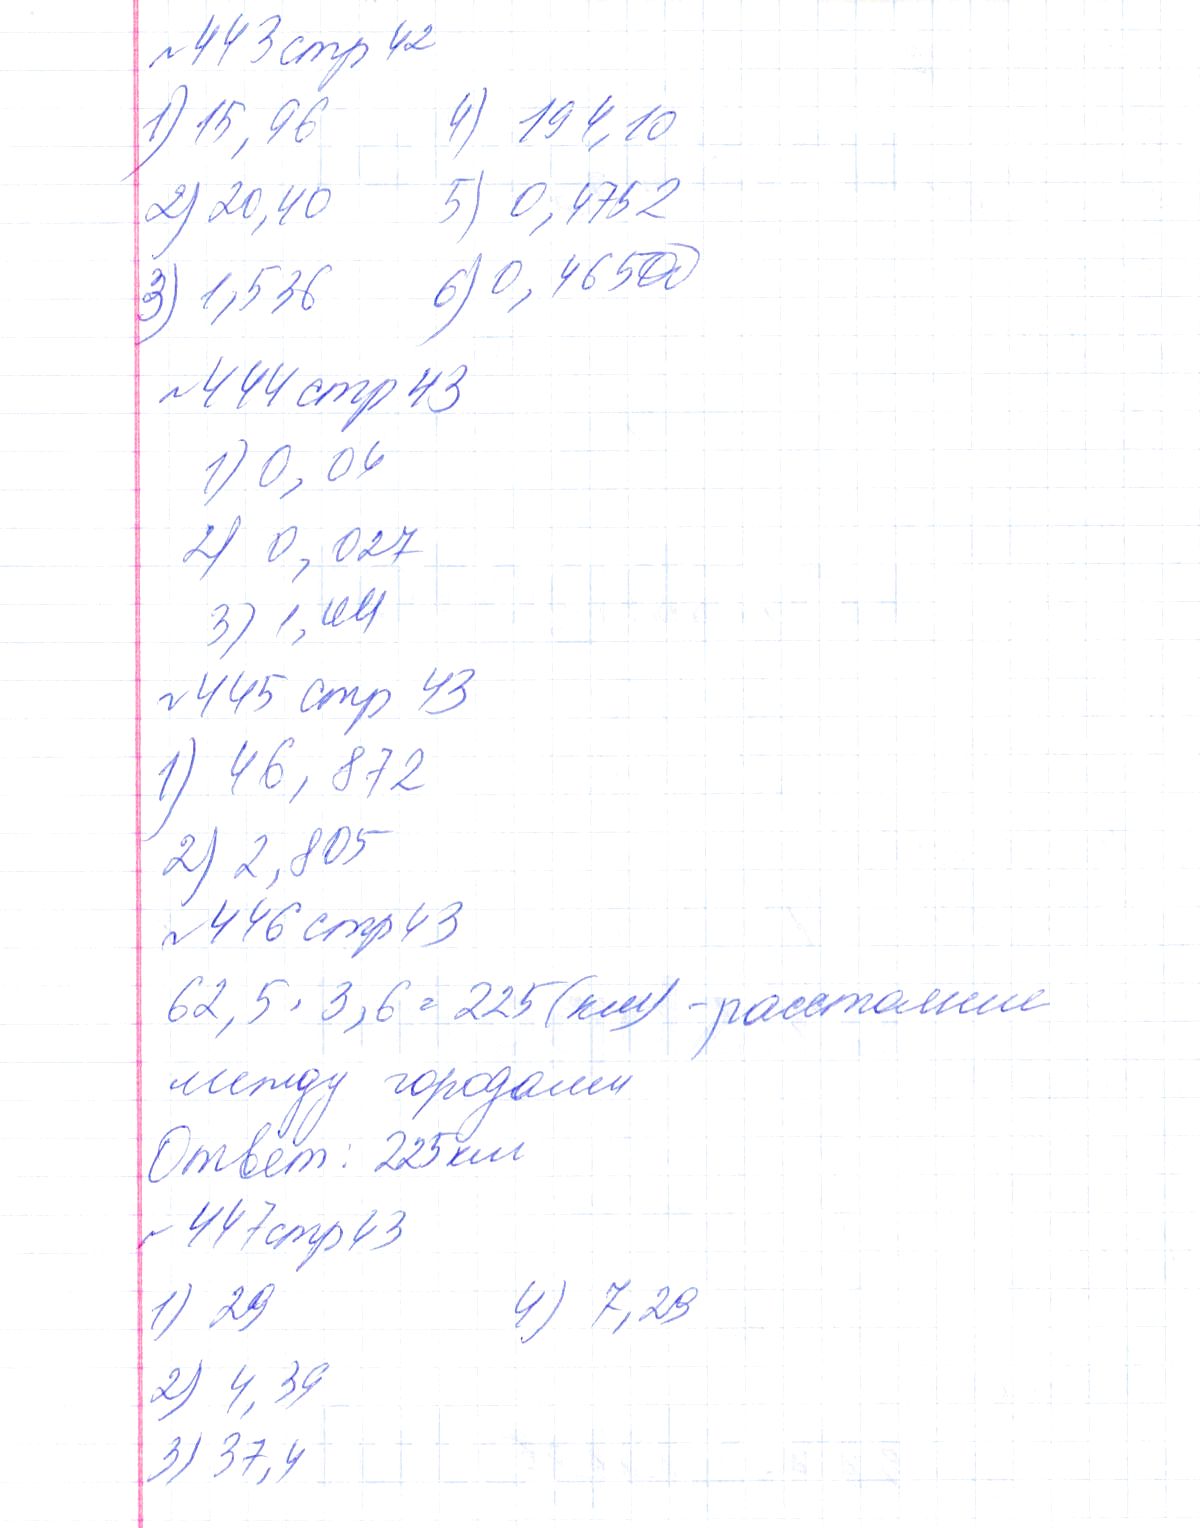 №443 стр 42
1) 15,96 4) 194,10
2) 20,40 5) 0,4752
3) 1,536 6) 0,46500
№444 стр 43
1) 0,04
2) 0,027
3) 1,44
№445 стр 43
1) 46,872
2) 2,805
№446 стр 43
62,5 · 3,6 = 225 (км) - расстояние
между городами
Ответ: 225 км
№447 стр 43
1) 29 4) 7,29
2) 4,39
3) 37,4